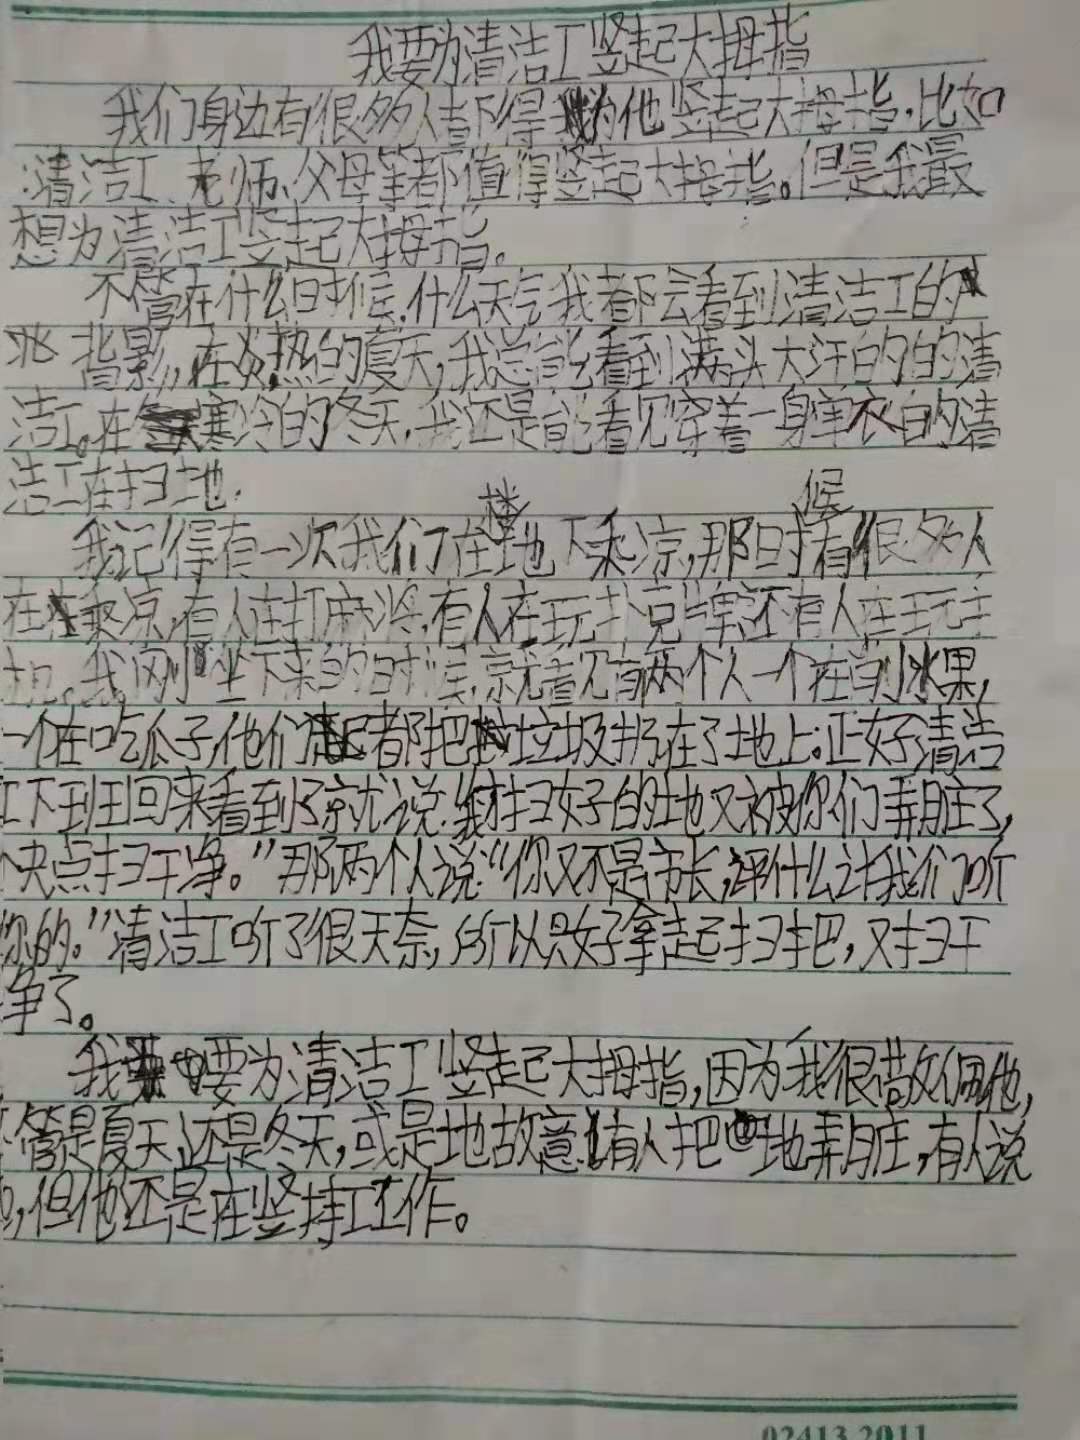 我要为清洁工竖起大拇指
我们身边有很多人都得为他竖起大拇指.比如
:清洁工、老师、父母等都值得竖起大拇指。但是我最
想为清洁工竖起大拇指.
不管在什么时候.什么天气我都会看到清洁工的
背影,在炎热的夏天,我总能看到满头大汗的的清
洁工。在寒冷的冬天,我还是能看见穿着一身单衣的清
洁工在扫地.
楼 候
我记得有一次我们在地下乘凉,那时有很多人
在乘凉,有人在打麻将,有人在玩扑克牌还有人在玩手
机。我刚坐下来的时候,就看见有两个人一个在削水果,
一个在吃瓜子,他们都把垃圾扔在了地上.正好清洁
工下到回来看到了就说:我扫好的地又被你们弄脏了,
快点扫干净。”那两个人说:“你又不是市长,评什么让我们听
你的."清洁工听了很天奈,所以只好拿起扫把,又扫干
净了。
我要为清洁工竖起大拇指,因为我很敬佩他,
管是夏天还是冬天,或是地故意有人把地弄脏,有人说
,但他还是在竖持工作。
02413.2011